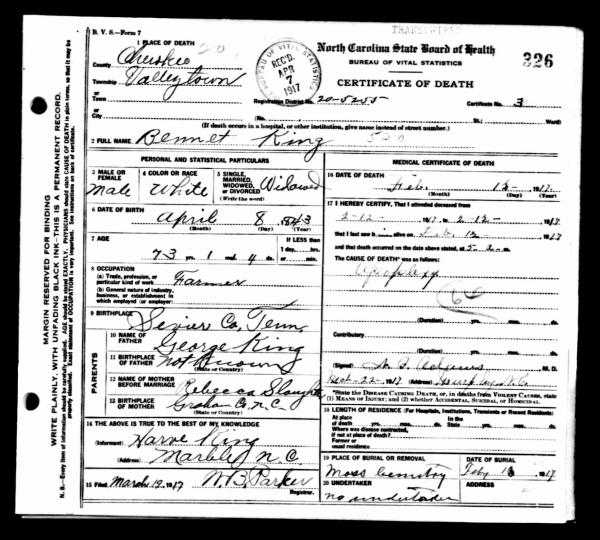 TRANSCRIBED
B. V. S.—Form 7
1 PLACE OF DEATH 20
County Cherokee
Township Valleytown
or
Town
or
City
BUREAU OF VITAL STATISTICS
REC'D.
APR
7
1917
North Carolina State Board of Health
BUREAU OF VITAL STATISTICS
326
CERTIFICATE OF DEATH
Registration District No. 20-5255 Certificate No. 3
(No. St.; Ward)
(If death occurred in a hospital, or other institution, give name instead of street number.)
2 FULL NAME Bennet King
PERSONAL AND STATISTICAL PARTICULARS
3 MALE OR FEMALE Male
4 COLOR OR RACE White
5 SINGLE, MARRIED, WIDOWED, OR DIVORCED (Write the word) Widowed
6 DATE OF BIRTH
April 8 1843
(Month) (Day) (Year)
7 AGE
73 yrs. 1 mos. 4 ds.
If LESS than
1 day, hrs.
or min.
8 OCCUPATION
(a) Trade, profession, or particular kind of work Farmer
(b) General nature of industry, business, or establishment in which employed (or employer)
9 BIRTHPLACE
Sevier Co, Tenn
(State or Country)
PARENTS
10 NAME OF FATHER George King
11 BIRTHPLACE OF FATHER Not Known
(State or Country)
12 NAME OF MOTHER BEFORE MARRIAGE Rebecca
13 BIRTHPLACE OF MOTHER Graham Co, N.C.
(State or Country)
14 THE ABOVE IS TRUE TO THE BEST OF MY KNOWLEDGE
(Informant) Harve King
(Address) Marble N C
15 Filed March 19 1917 N. B. Parker
Registrar.
MEDICAL CERTIFICATE OF DEATH
16 DATE OF DEATH
Feb. 12 1917
(Month) (Day) (Year)
17 I HEREBY CERTIFY, That I attended deceased from
2-12- 1917 to 2-12- 1917
that I last saw alive on Feb. 12 1917
and that death occurred on the date above stated, at m.
The CAUSE OF DEATH* was as follows:
Apoplexy
(Duration) yrs. mos. ds.
Contributory
(Duration) yrs. mos. ds.
(Signed) M. D.
1917 (Address)
*State the DISEASE CAUSING DEATH, or, in deaths from VIOLENT CAUSES, state
(1) MEANS OF INJURY; and (2) whether ACCIDENTAL, SUICIDAL, OR HOMICIDAL.
18 LENGTH OF RESIDENCE (For Hospitals, Institutions, Transients or Recent Residents)
At place of death yrs. mos. ds. In the State yrs. mos. ds.
Where was disease contracted, if not at place of death?
Former or usual residence
19 PLACE OF BURIAL OR REMOVAL
Moss cemetry
DATE OF BURIAL
Feb 1917
20 UNDERTAKER
no undertaker
ADDRESS
MARGIN RESERVED FOR BINDING
WRITE PLAINLY, WITH UNFADING BLACK INK—THIS IS A PERMANENT RECORD.
N. B.—Every item of information should be carefully supplied. AGE should be stated EXACTLY. PHYSICIANS should state CAUSE OF DEATH in plain terms, so that it may be properly classified. Exact statement of OCCUPATION is very important. See instructions on back of certificate.